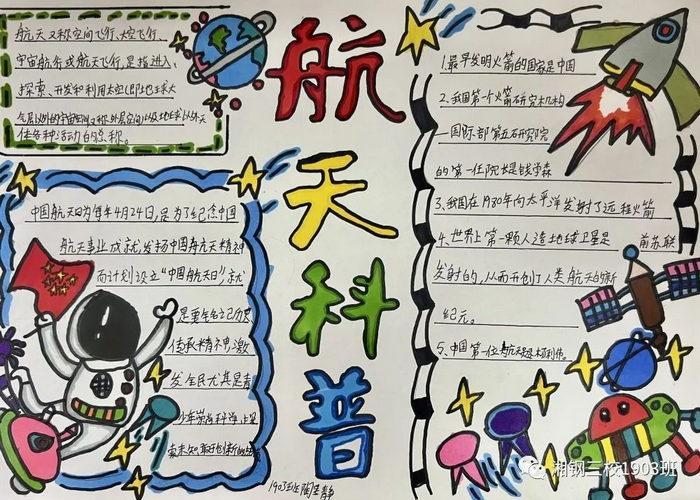 航天又称空间飞行、太空飞行、
宇宙航行或航天飞行,是指进入、
探索、开发和利用太空(即地球大
气层以外的宇宙空间又称外层空间)以及地球以外天
体各种活动的总称。
中国航天日为每年4月24日,是为了纪念中国
航天事业成就,发扬中国航天精神
而计划设立"中国航天日",就
是要铭记历史
传承精神,激
发全民尤其是青
少年崇尚科学、探
索未知、敢于创新的
航天科普
1903班
1.最早发明火箭的国家是中国
2.我国第一个火箭研究机构
—国际部第五研究院
的第一任院长是钱学森
3、我国在1980年向太平洋发射了远程火箭
4、世界上第一颗人造地球卫星是 前苏联
发射的,从而开创了人类航天的新
纪元。
5、中国第一位航天员是杨利伟。
湘钢三校1903班